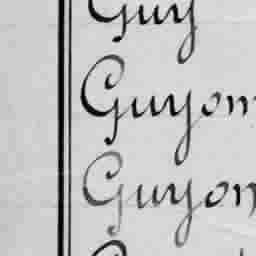 Guy
Guyom
Guyon